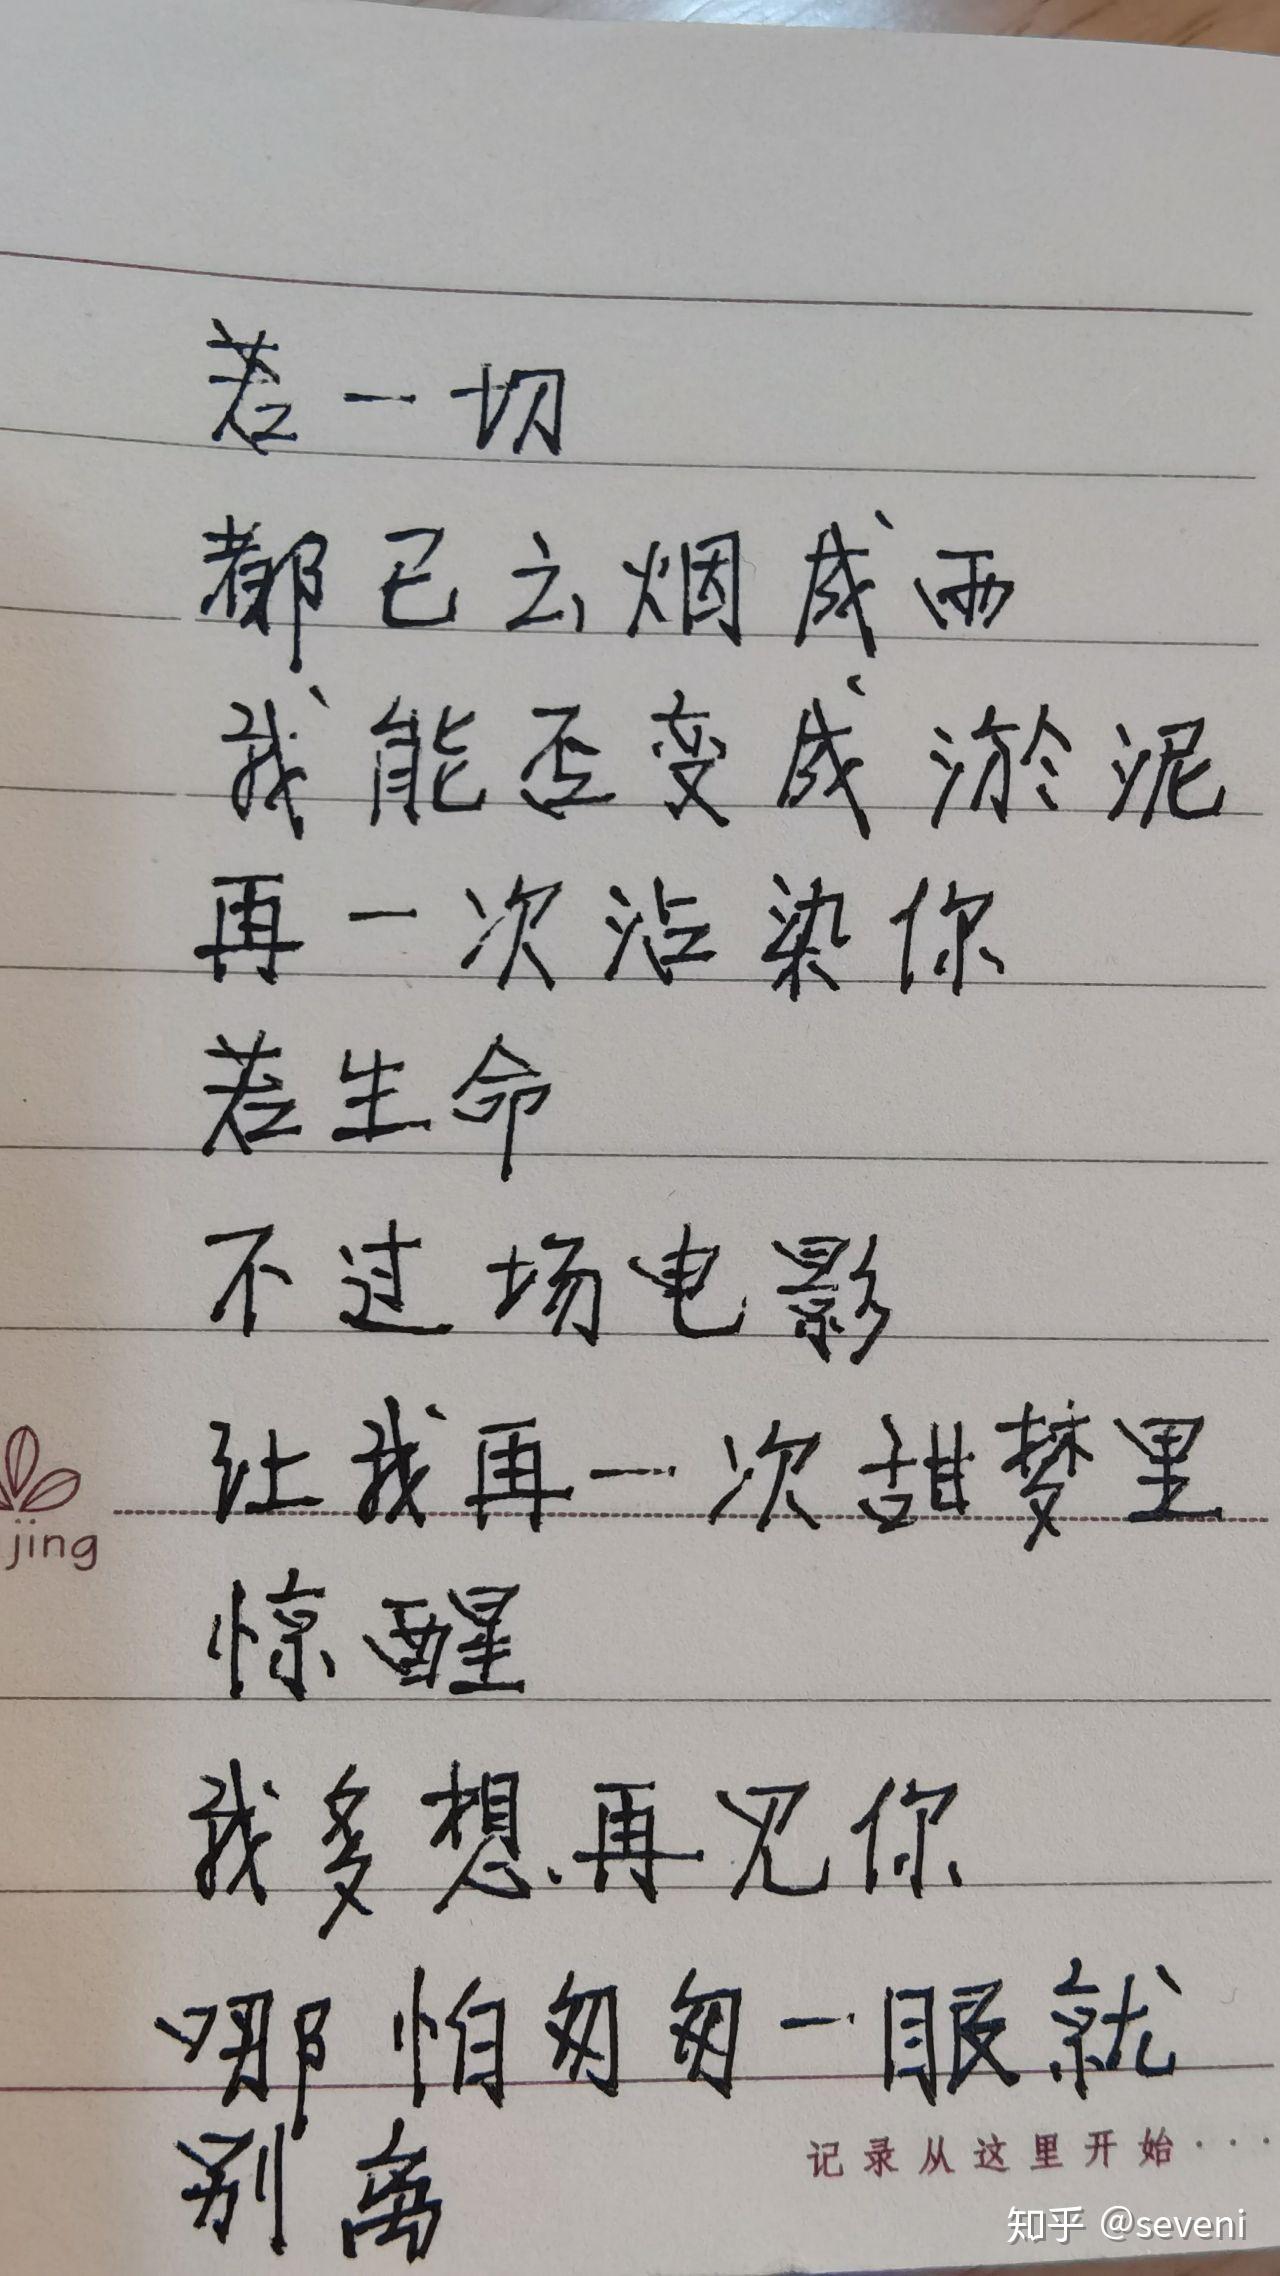 若一切
都已云烟成雨
我能否变成淤泥
再一次沾染你
若生命
不过场电影
让我再一次甜梦里
惊醒
我多想再见你
哪怕匆匆一眼就
别离
jing
记录从这里开始···
知乎 @seveni